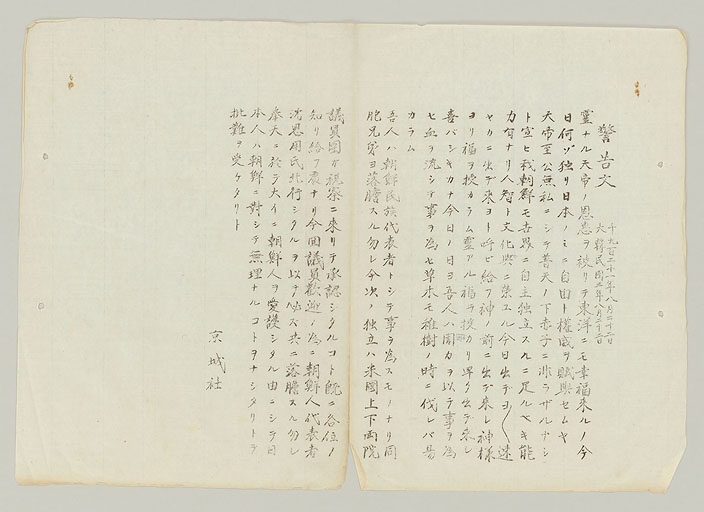 警告文
千九百二十一年八月二十二日
大韓民国二年八月二十二日
靈ナル天帝ノ恩惠ヲ被リテ東洋ニモ幸福來ルノ今
日何ゾ独リ日本ノミニ自由ト權威ヲ賦與セムヤ
天帝至公無私ニシテ普天ノ下赤子ニ非ラザルナシ
ト宣ヒ我朝鮮モ世界ニ自主独立スルニ足ルベキ能
力有ナリ人智ト文化興ニ榮エル今日出デヨ〳〵速
ヤカニ出デ來ヨト呼ビ給フ神ノ前ニ出デ來レ神様
ヨリ福ヲ授カラム靈アル福ヲ授カリ早ク出デ來レ
喜バシキカナ今日ノ日ヨ吾人ハ ヲ以テ事ヲ為
セ血ヲ流シテ事ヲ為セ草木モ稚樹ノ時ニ伐レバ易
カラム
吾人ハ朝鮮民族代表者トシテ事ヲ為スモノナリ同
胞兄弟ヨ落膽スル勿レ今次ノ独立ハ米國上下両院
議員團ガ視察ニ來リテ承認シタルコト既ニ各位ノ
知リ給フ處ナリ今回議員歓迎ノ為ニ朝鮮人代表者
沈恩用氏北行シタルヲ以テ必ズ共ニ落膽スル勿レ
奉天ニ於テ大イニ朝鮮人ヲ愛護シタル由ニシテ日
本人ハ朝鮮ニ對シテ無理ナルコトヲナシタリトテ
批難ヲ受ケタリト
京城社